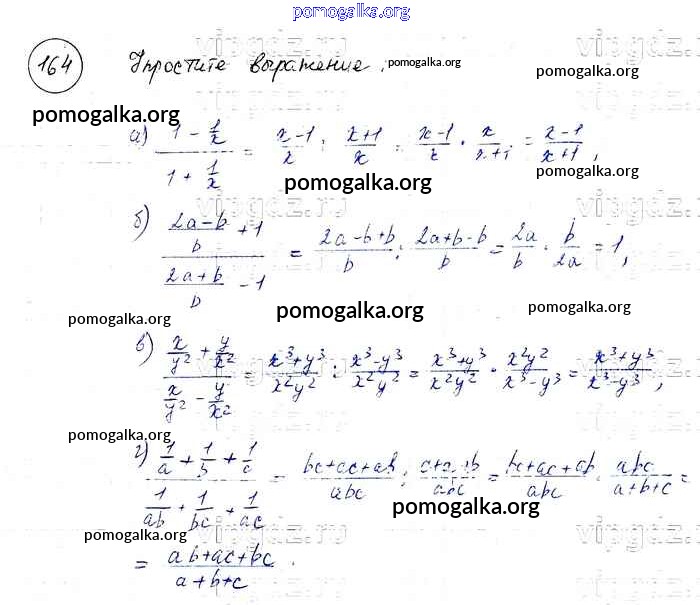 pomogalka.org
164 Упростите выражение. pomogalka.org
pomogalka.org pomogalka.org
а) (1 - 1/x)/(1 + 1/x) = (x-1)/x : (x+1)/x = (x-1)/x · x/(x+1) = (x-1)/(x+1),
pomogalka.org pomogalka.org
б) ((2a-b)/b + 1)/((2a+b)/b - 1) = (2a-b+b)/b : (2a+b-b)/b = 2a/b · b/2a = 1,
pomogalka.org pomogalka.org pomogalka.org
в) (x/y² + y/x²)/(x/y² - y/x²) = (x³+y³)/(x²y²) : (x³-y³)/(x²y²) = (x³+y³)/(x²y²) · (x²y²)/(x³-y³) = (x³+y³)/(x³-y³),
pomogalka.org pomogalka.org
г) (1/a + 1/b + 1/c)/(1/ab + 1/bc + 1/ac) = (bc+ac+ab)/abc : (c+a+b)/abc = (bc+ac+ab)/abc · abc/(a+b+c) =
pomogalka.org pomogalka.org
= (ab+ac+bc)/(a+b+c).
pomogalka.org pomogalka.org